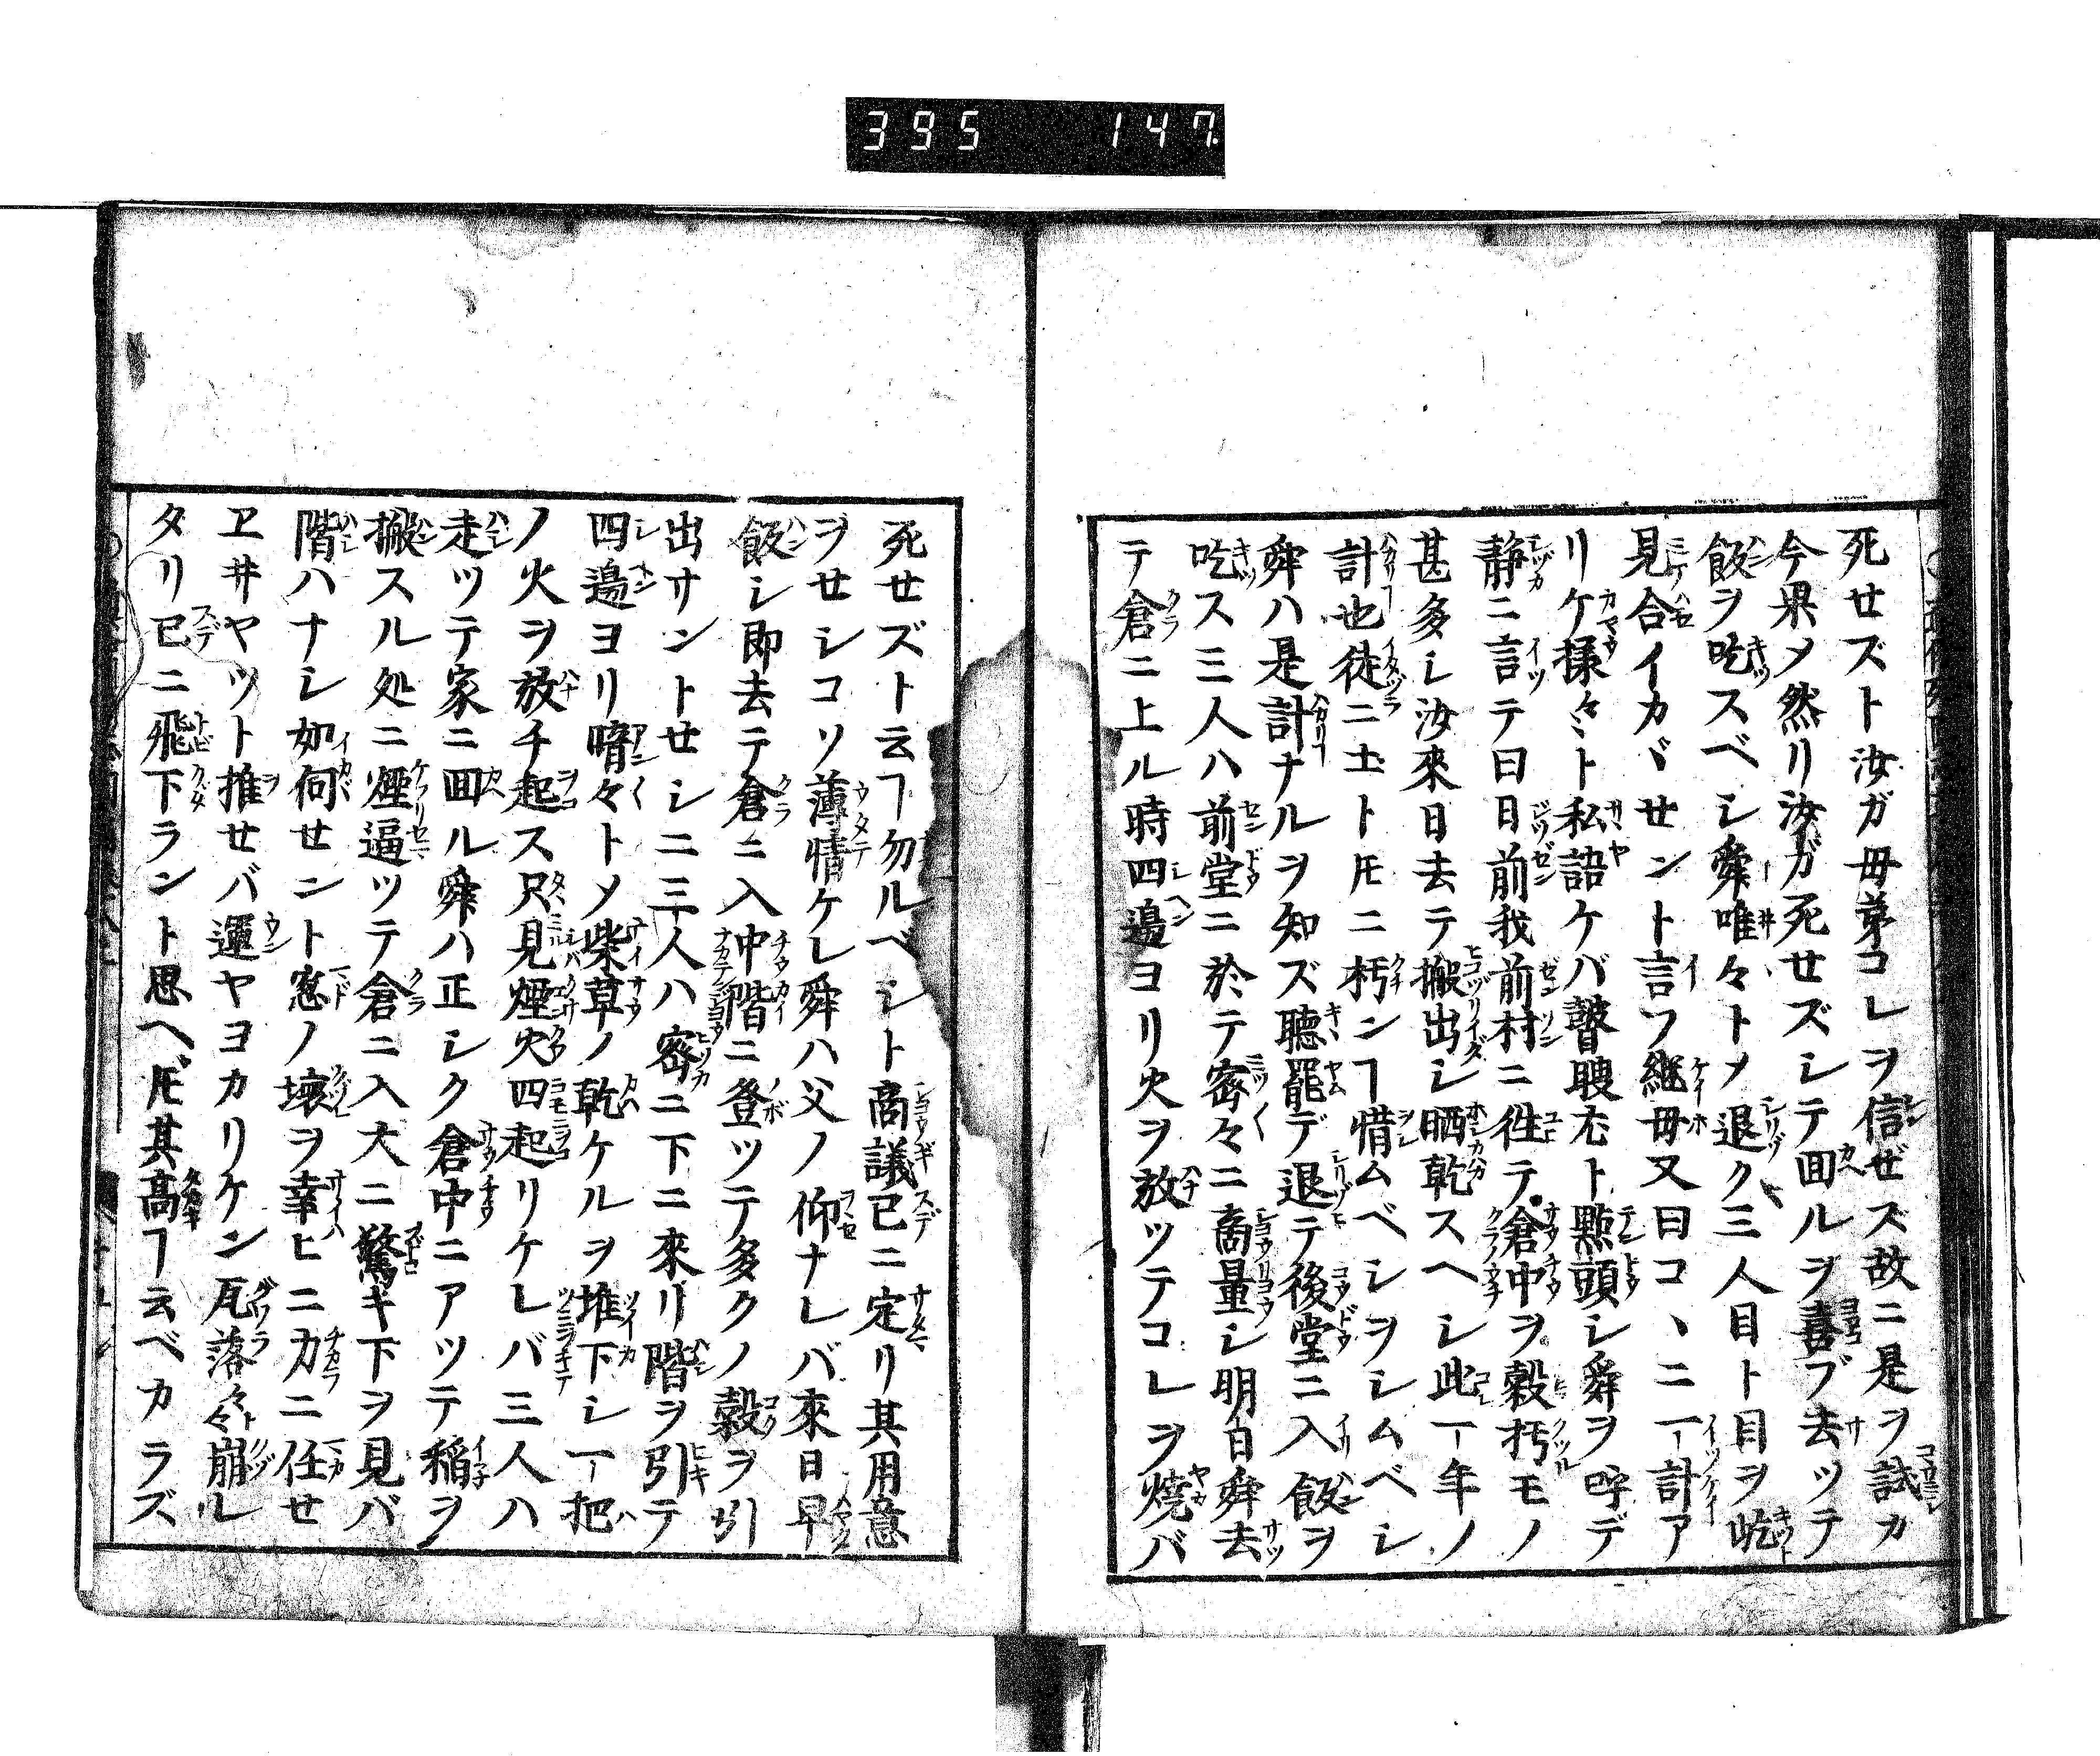 395 147
死せズト汝ガ母弟コレヲ信ぜズ故ニ是ヲ試カ
今果メ然リ汝ガ死せズシテ囬ルヲ喜ブ去ッテ
飯ヲ吃スベシ舜唯々トメ退ク三人目ト目ヲ屹
見合イカヾせント言フ継母又曰コヽニ一計ア
リケ様々ヽト私語ケバ瞽聰尤ト點頭シ舜ヲ呼デ
静ニ言テ曰日前我前村ニ徃テ倉中ヲ穀朽モノ
甚多シ汝來日去テ搬出シ晒乾スヘシ此一年ノ
計也徒ニ土ト𪜈ニ朽ンヿ惜ムベシヲシムベシ
舜ハ是計ナルヲ知ズ聴罷デ退テ後堂ニ入飯ヲ
吃ス三人ハ前堂ニ於テ密々ニ商量シ明日舜去
テ倉ニ上ル時四邉ヨリ火ヲ放ッテコレヲ焼バ
死せズト云ヿ勿ルベシト商議已ニ定リ其用意
ヲせシコソ薄情ケレ舜ハ父ノ仰ナレバ來日早
飯シ即去テ倉ニ入中階ニ登ッテ多クノ穀ヲ引
出サントせシニ三人ハ密ニ下ニ來リ階ヲ引テ
四邉ヨリ暗々トメ柴草ノ乾ケルヲ堆下シ一把
ノ火ヲ放チ起ス只見煙火四起リケレバ三人ハ
走ッテ家ニ囬ル舜ハ正シク倉中ニアッテ稲ヲ
搬スル処ニ煙逼ッテ倉ニ入大ニ驚キ下ヲ見バ
階ハナシ如何せント窓ノ壊ヲ幸ヒニ力ニ任せ
ヱ井ヤット推せバ運ヤヨカリケン瓦落々々崩レ
タリ已ニ飛下ラント思ヘ𪜈其高ヿ云ベカラズ